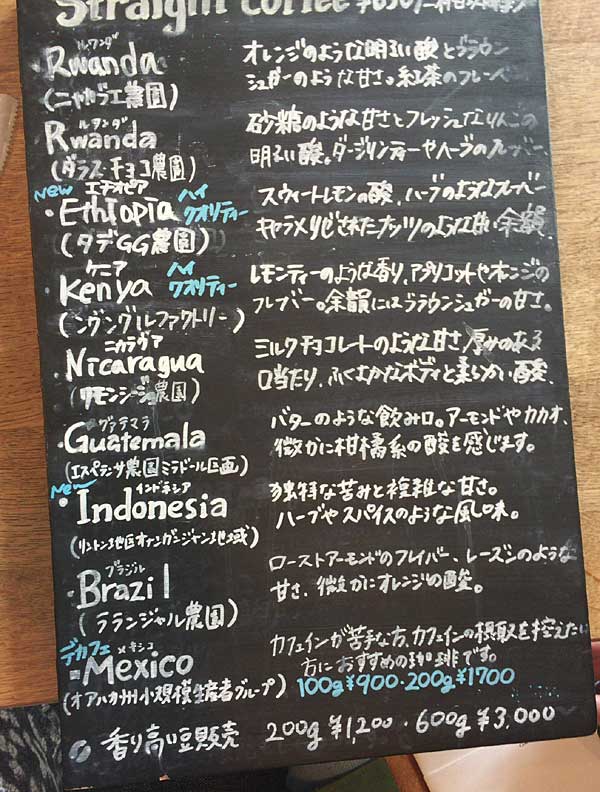 Straight coffee
ルワンダ
・Rwanda オレンジのような明るい酸とブラウン
(ニャルシエ農園) シュガーのような甘さ。紅茶のフレーバー
ルワンダ
Rwanda 砂糖のような甘さとフレッシュなりんごの
(ダラス チョコ農園) 明るい酸。ダージリンティーやハーブのフレーバー
New エチオピア ハイ
・Ethiopia クオリティー スウィートレモンの酸、ハーブのようなフレーバー
(タデGG農園) キャラメリゼされたナッツのような甘い余韻
ケニア ハイ
Kenya クオリティー レモンティーのような香り、アプリコットやオレンジの
(ングングルファクトリー) フレーバー。余韻にはブラウンシュガーの甘さ。
ニカラグア
・Nicaragua ミルクチョコレートのような甘さ、厚みのある
(リモンシージョ農園) 口当たり、ふくよかなボディと柔らかい酸
グァテマラ
・Guatemala バターのような飲み口。アーモンドやカカオ、
(エスペランサ農園ミラドール区画) 微かに柑橘系の酸を感じます。
New インドネシア
・Indonesia 独特な苦みと複雑な甘さ。
(リントン地区オナンガンジャン地域) ハーブやスパイスのような風味。
ブラジル
・Brazil ローストアーモンドのフレイバー、レーズンのような
(ラランジャル農園) 甘さ、微かにオレンジの酸。
デカフェ メキシコ
-Mexico カフェインが苦手な方、カフェインの摂取を控えたい
方におすすめの珈琲です。
(オアハカ州小規模生産者グループ) 100g¥900・200g¥1700
香り高い豆販売 200g ¥1,200・600g ¥3,000